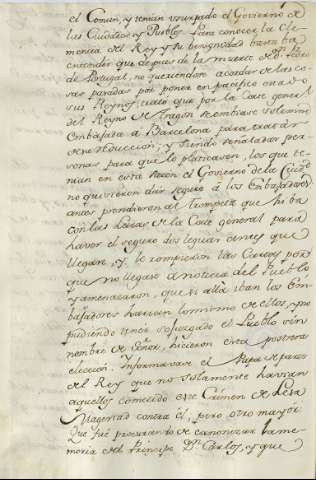 el Comun, y tenian usurpado el Govierno de
las Ciudades y Pueblos. Para conocer la Cle-
mencia del Rey y su benignidad basta
entender que despues de las muerte de Dn. Pedro
de Portugal, no queriendo acordar de las co-
sas pasadas por poner en pacifico estado
sus Reynos, cuito que por la Corte general
del Reyno de Aragon se embiase solemne
Embajada á Barcelona para tratar
de su reduccion, y siendo señaladas per-
sonas para que lo platicasen, los que te-
nian en esta sazon el Govierno de la Ciudad
no quisieron dár seguro á los Embajadores
antes prendieron al trompeta que hiba
con las letras de la Corte general para
haver el seguro dos leguas antes que
llegase, y le rompieron las Cartas por
que no llegase á noticia del Pueblo
y amenazaron, que si allá iban los Em-
bajadores harian lo mismo de ellos, y no
pudiendo tener sosegado el Pueblo sin
nombre de Señor, hicieron esta postrera
eleccion. Informavase el Papa de parte
del Rey que no solamente havian
aquellos cometido este Crimen de Lesa
Magestad contra él, pero otro mayor
Que fué procurando de canonizar la me-
moria del Principe Dn. Carlos, y que